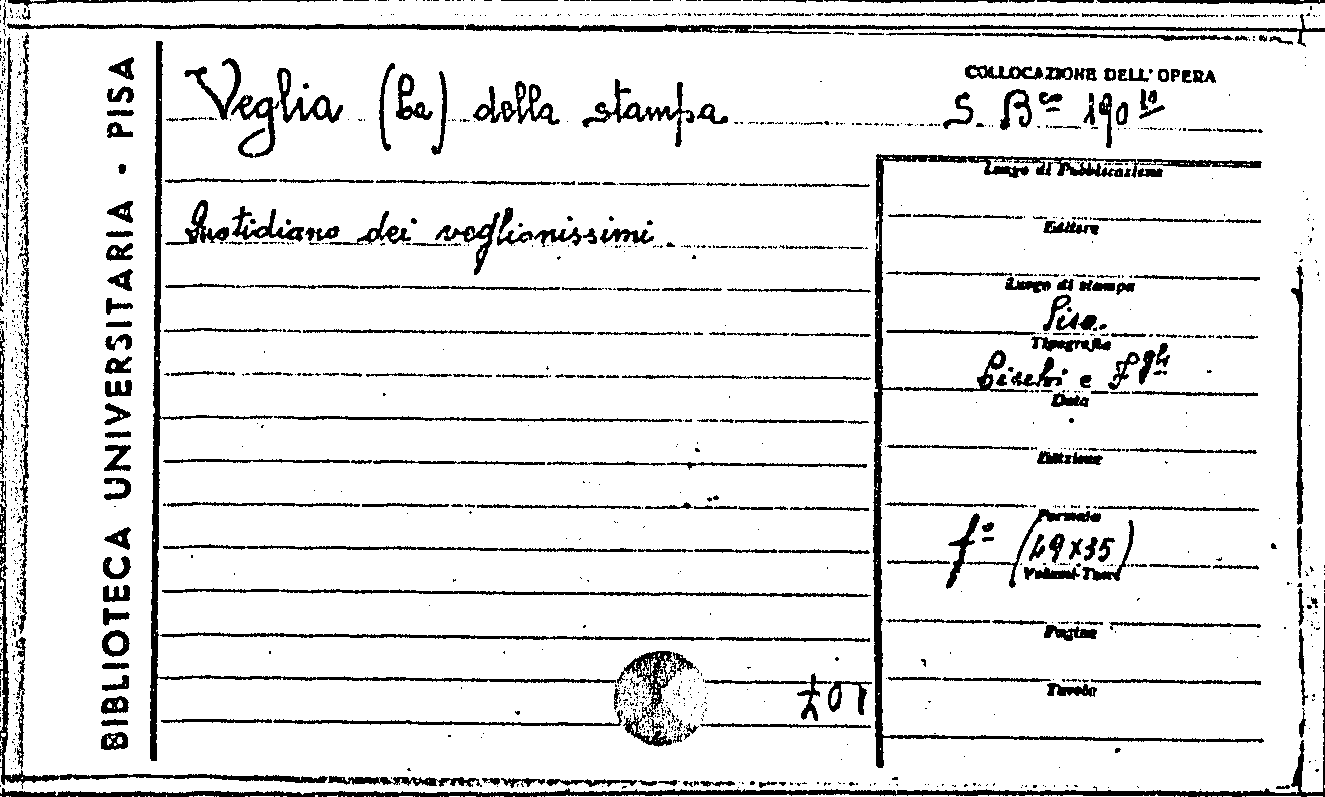 BIBLIOTECA UNIVERSITARIA - PISA
Veglia (La) della stampa
Quotidiano dei veglionissimi.
COLLOCAZIONE DELL' OPERA
S. B.co 190 10
Luogo di Pubblicazione
Editore
Luogo di stampa
Pisa.
Tipografia
Lischi e Fgli
Data
Edizione
Formato
f° (49x35)
Volumi-Tomi
Pagine
Tavole